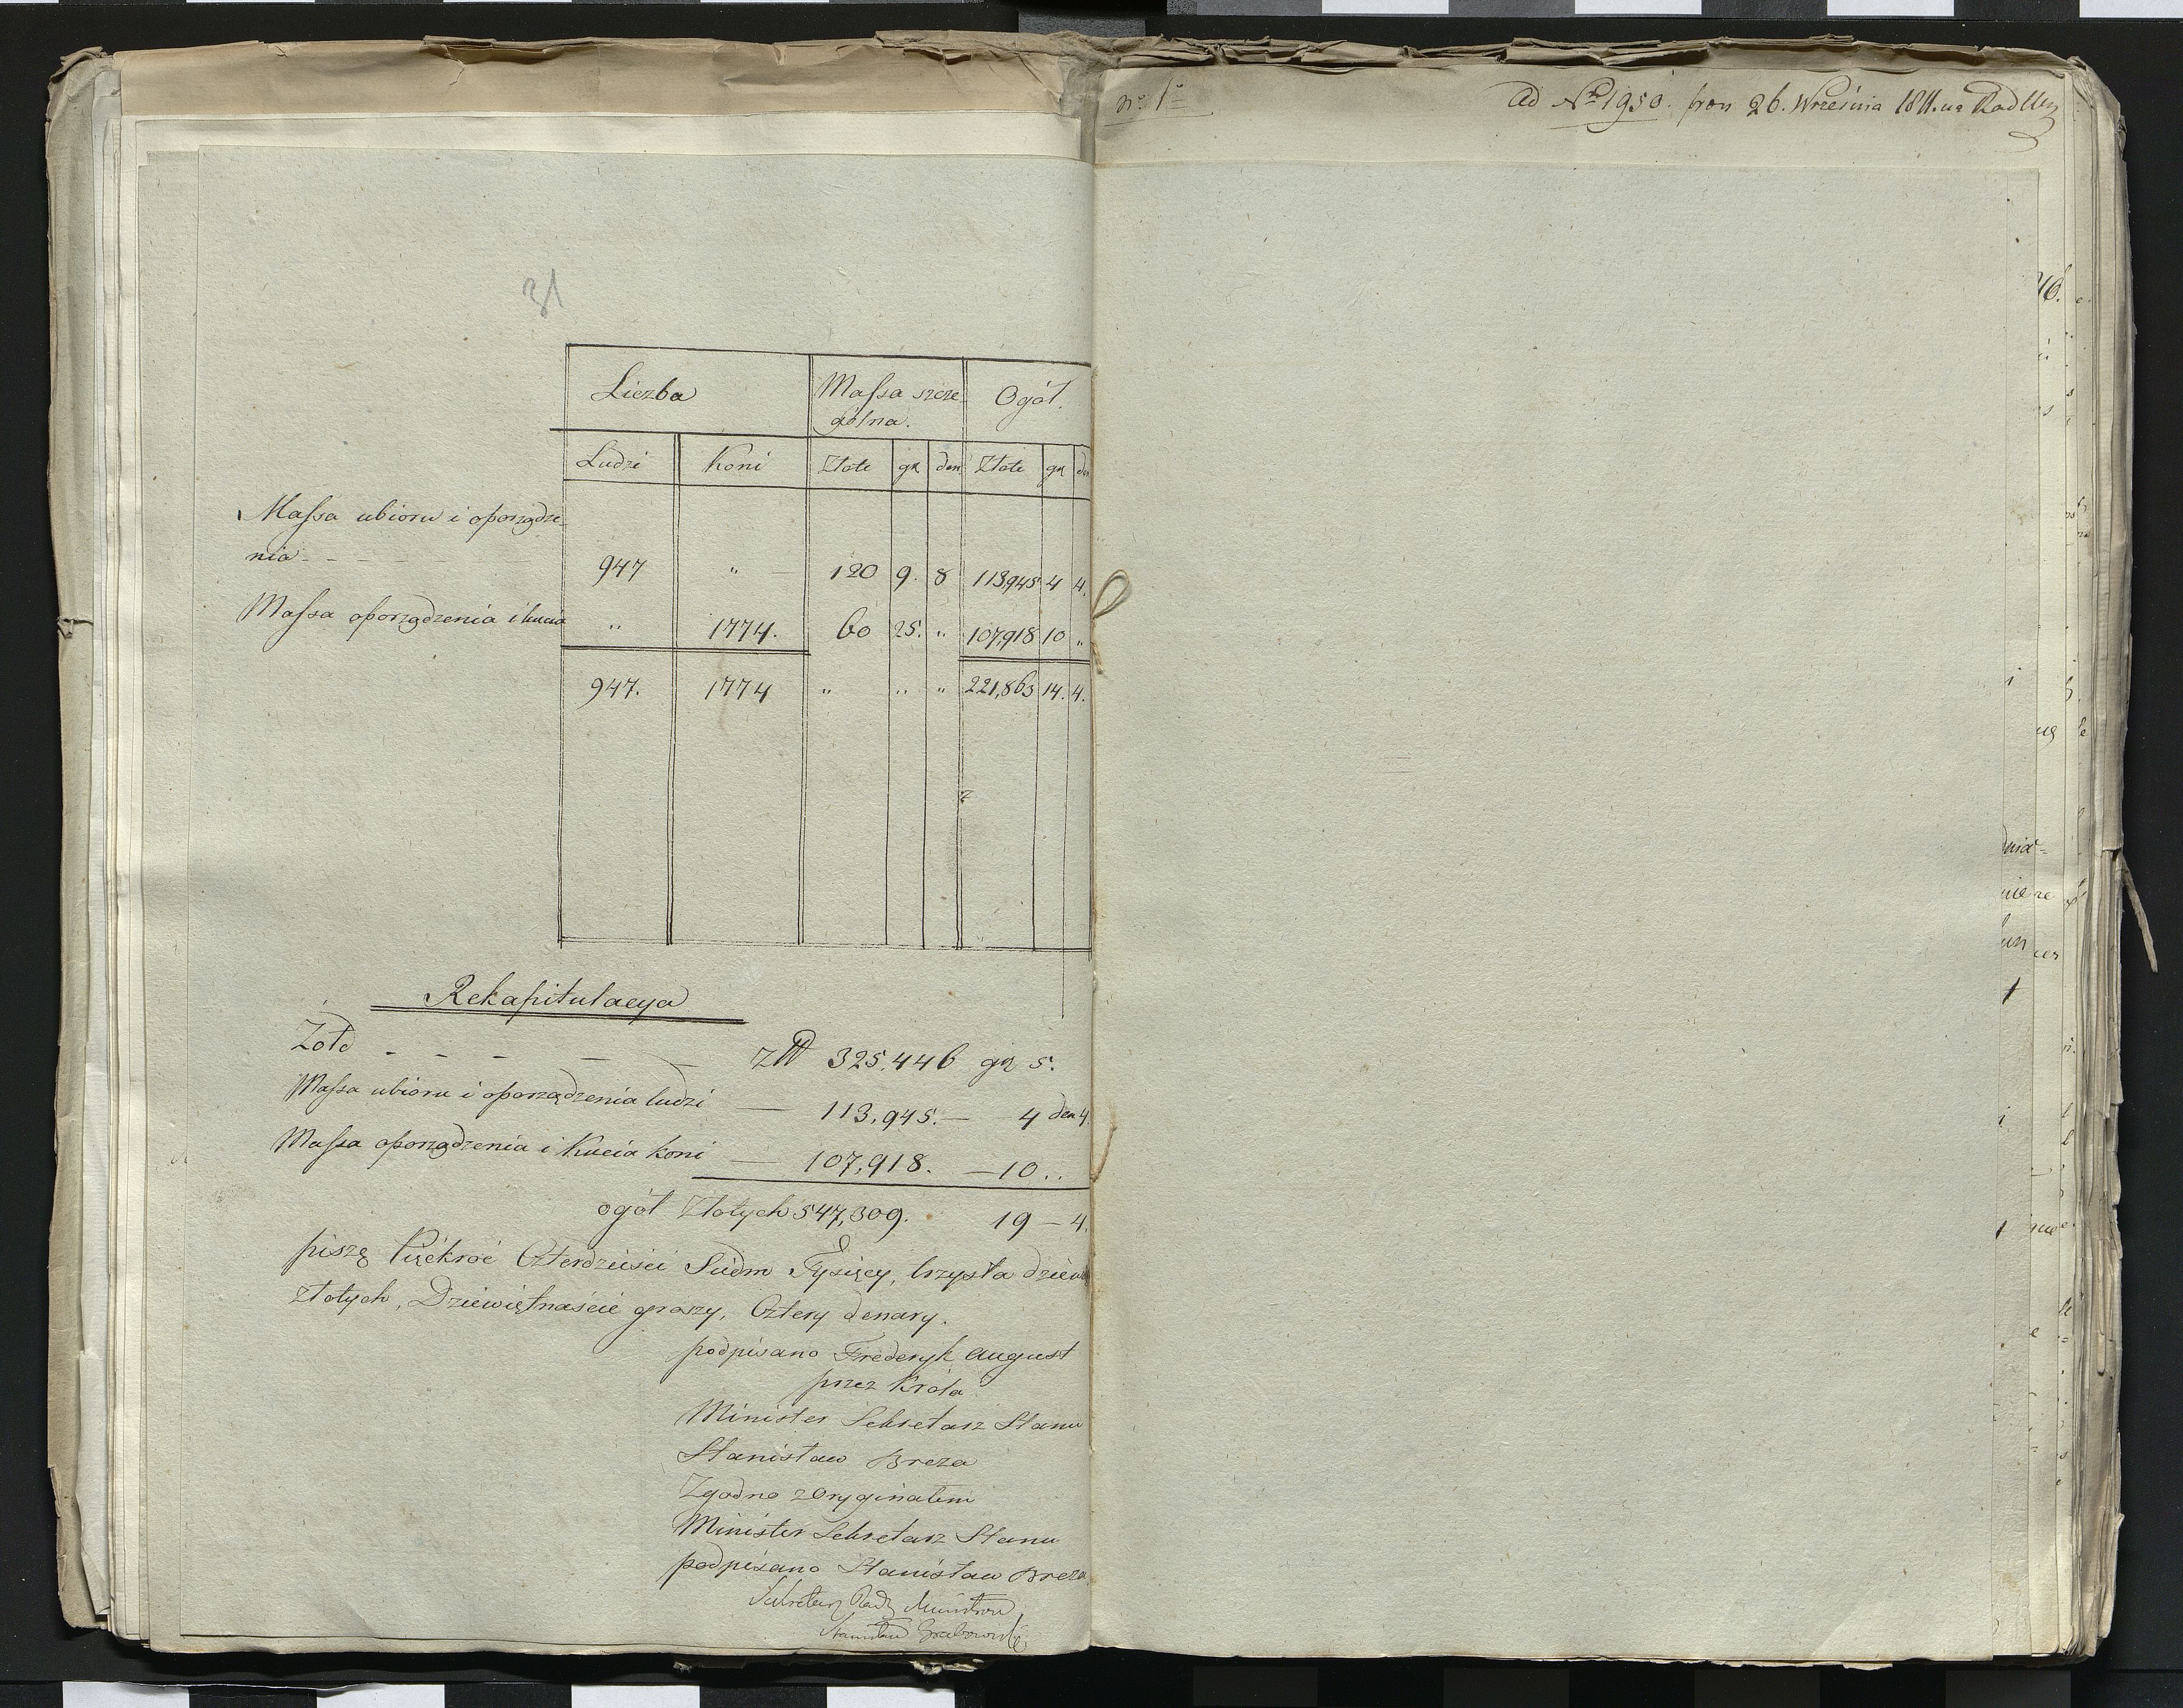 31
Liczba
Massa szcze-
gólna.
Ogół.
Ludzi Koni Złote gr den Złote gr den
Massa ubioru i oporządze-
nia - - - - - 947 " 120 9. 8 113,945 4 4.
Massa oporządzenia i kucia " 1774. 60 25. " 107,918 10 "
947. 1774 " " " 221,863 14. 4.
Rekapitulacya
Żołd - - - - - 325.446 gr 5.
Massa ubioru i oporządzenia ludzi — 113,945. — 4 den 4.
Massa oporządzenia i Kucia koni — 107,918. — 10 ..
ogół Złotych 547,309. 19 — 4.
piszę Pięckroć Czterdzieści Siedm Tysięcy, trzysta dziew
złotych, Dziewiętnaście groszy, Cztery denary.
podpisano Frederyk August
przez Króla
Minister Sekretarz Stanu
Stanisław Breza
Zgodno z Oryginałem
Minister Sekretarz Stanu
podpisano Stanisław Breza
Sekretarz Rady Ministrów
Stanisław Grabowski
No. 1o
Ad No 1950. 26. Września 1811.